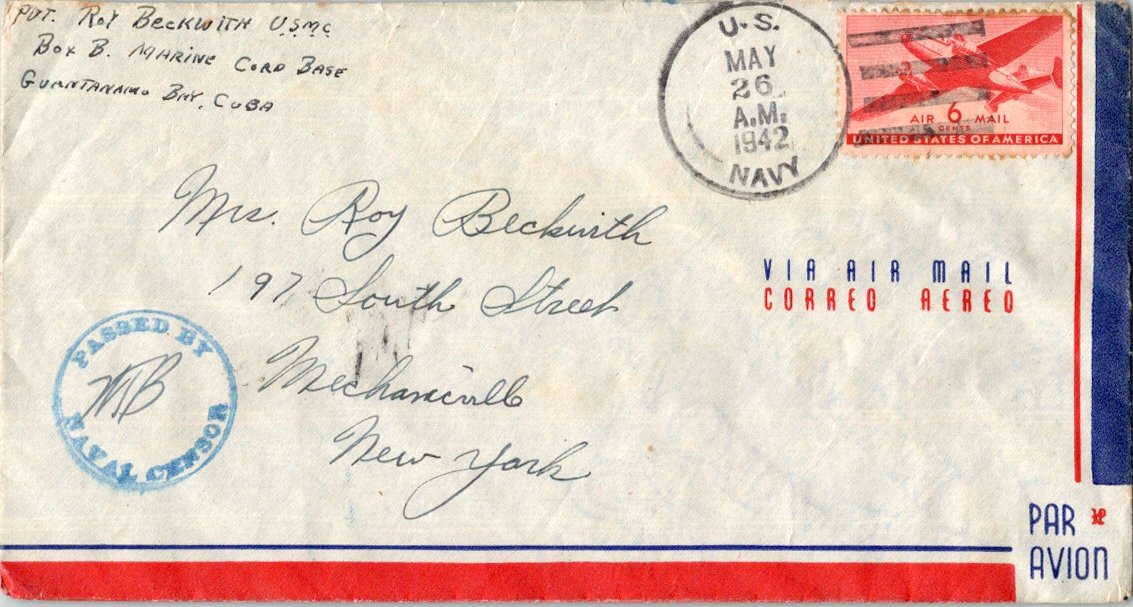 PVT. ROY BECKWITH U.S.M.C.
BOX B. MARINE CORP BASE
GUANTANAMO BAY, CUBA
U.S.
MAY
26
A.M.
1942
NAVY
AIR 6 MAIL
CENTS
UNITED STATES OF AMERICA
Mrs. Roy Beckwith
197 South Street
Mechanicville
New York
VIA AIR MAIL
CORREO AEREO
PASSED BY
NAVAL CENSOR
PAR
AVION